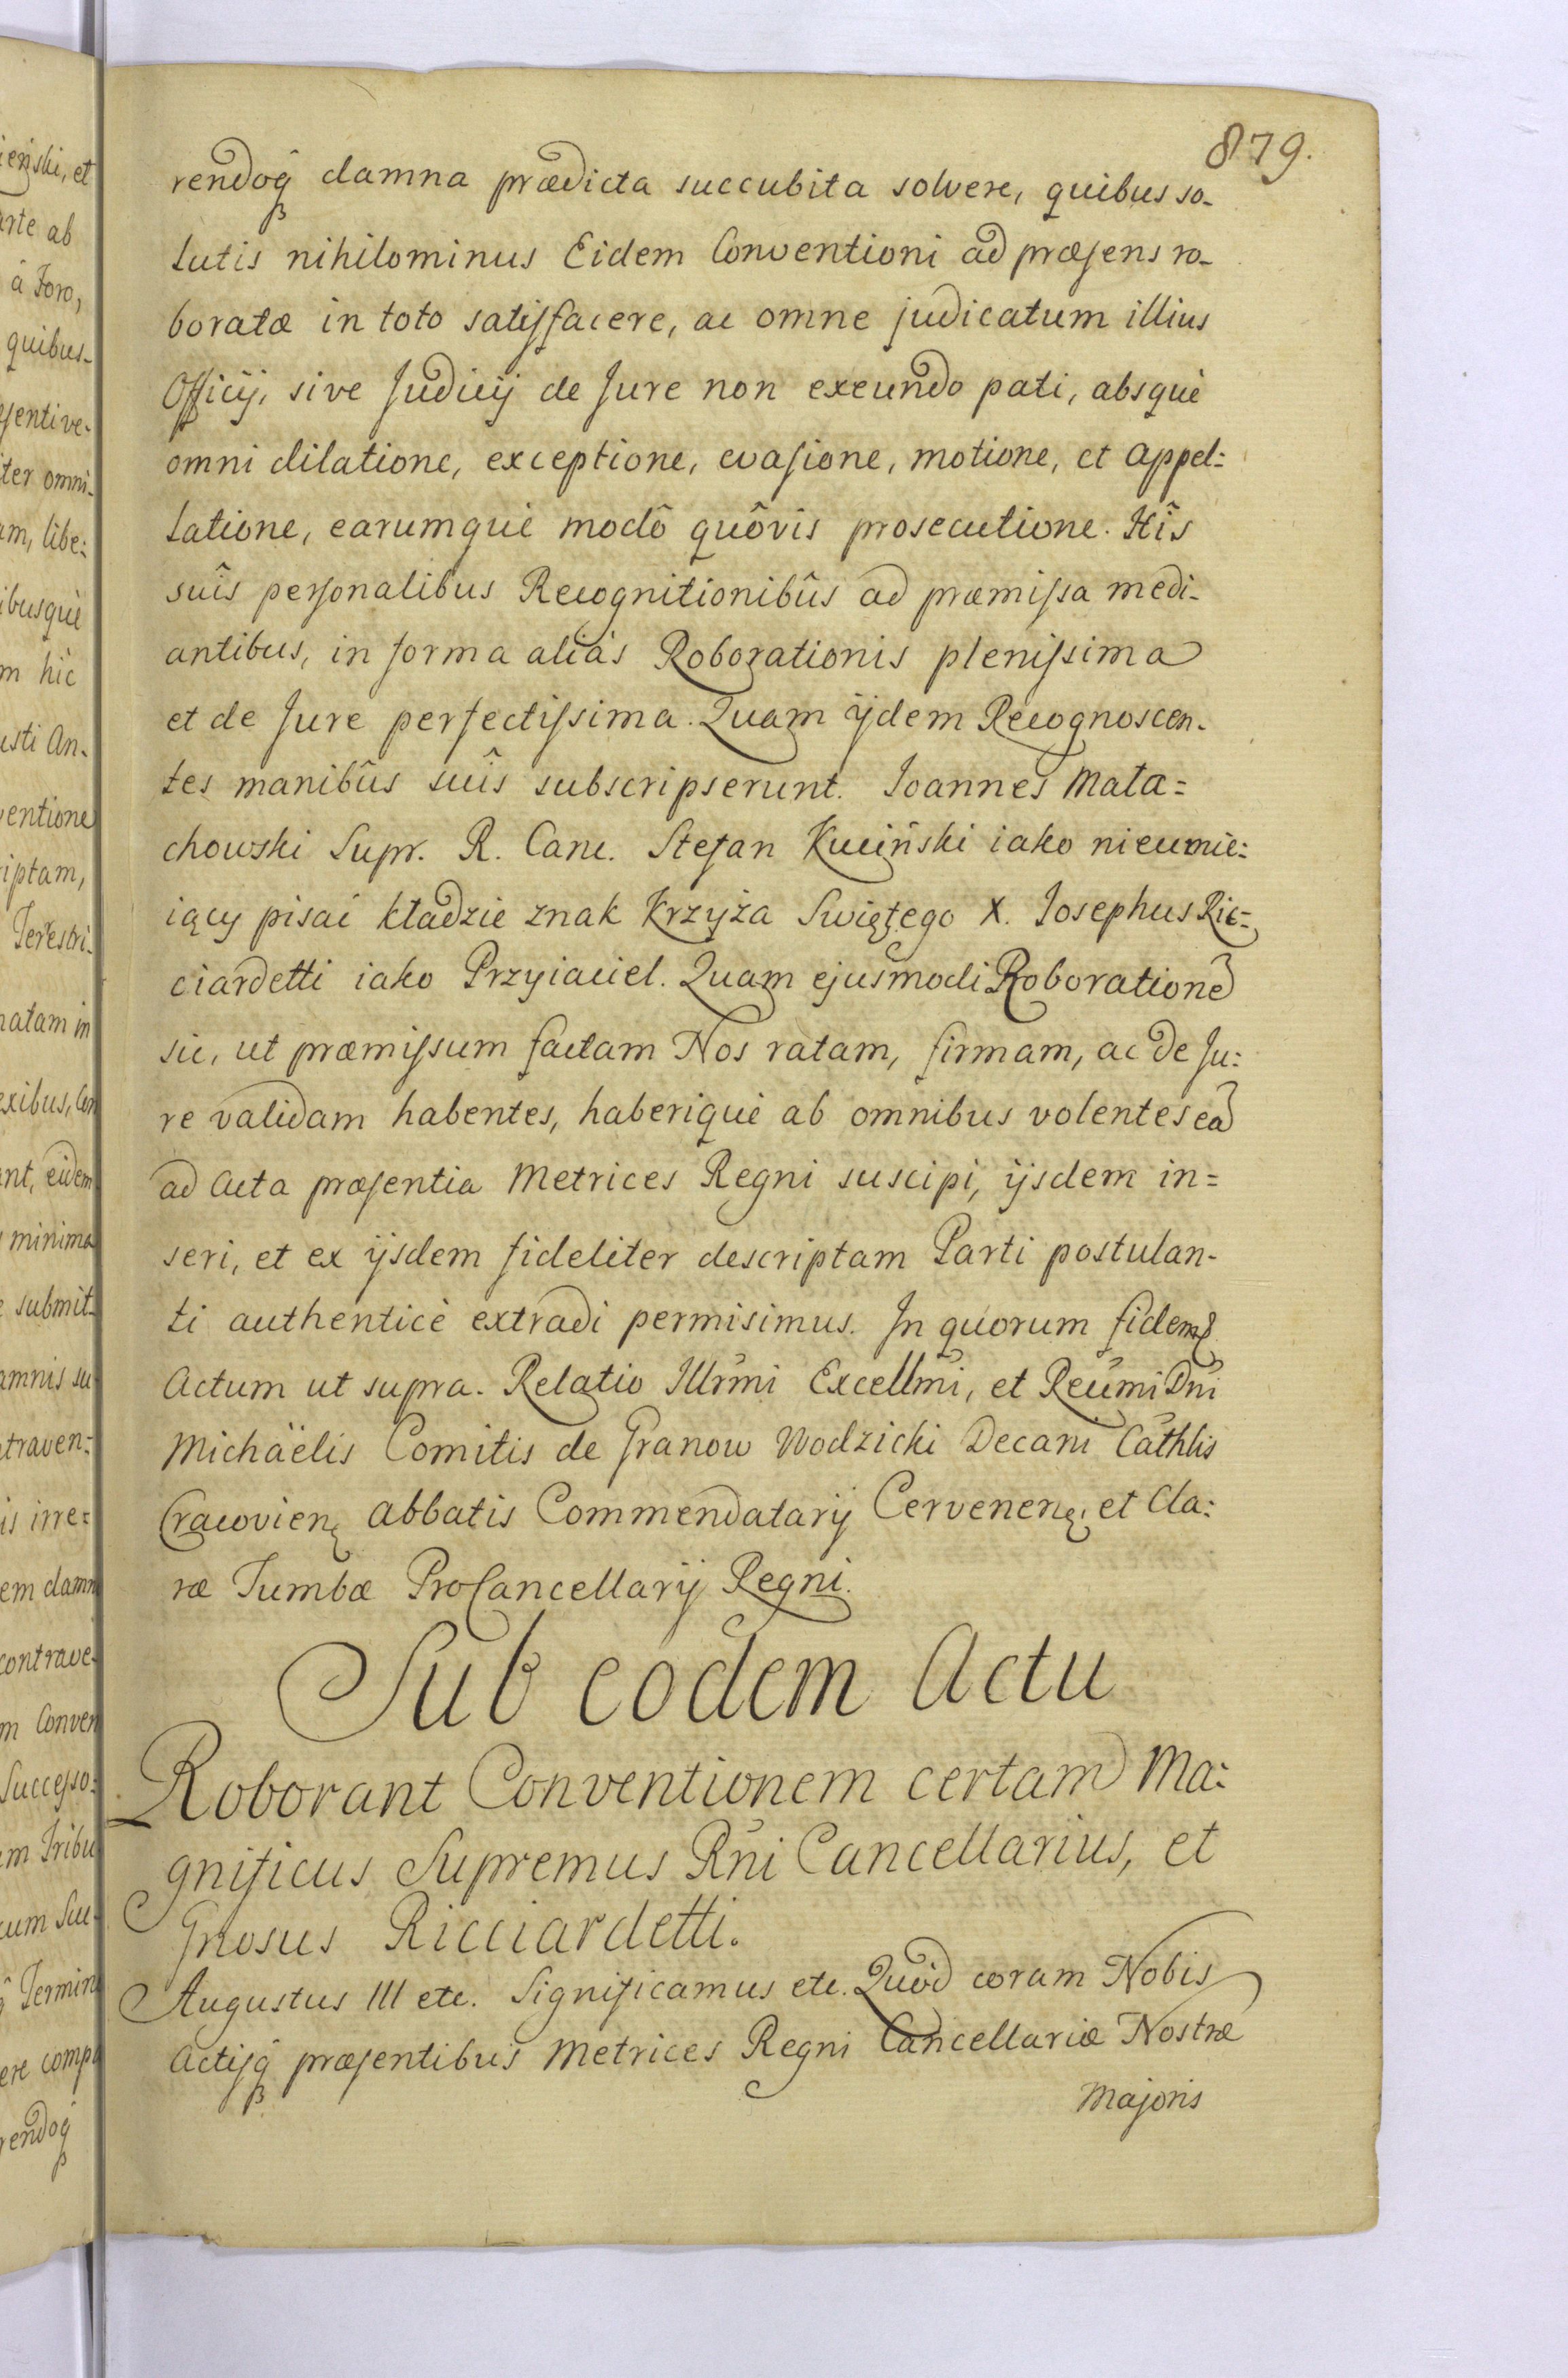 879.
rendoq̃ damna prædicta succubita solvere, quibus so-
lutis nihilominus Eidem Conventioni ad præsens ro-
boratæ in toto satisfacere, ac omne judicatum illius
Officij, sive Judicij de Jure non exeundo pati, absquè
omni dilatione, exceptione, evasione, motione, et appel:
latione, earumquè modô quôvis prosecutione. Hîs
suîs personalibus Recognitionibûs ad præmissa medi-
antibus, in forma aliàs Roborationis plenissima
et de Jure perfectissima. Quam ijdem Recognoscen-
tes manibûs suîs subscripserunt. Joannes Mała=
chowski Supr. R. Canc. Stefan Kuciński iako nieumie:
iący pisać kładzie znak Krzyża Swiętego X. Josephus Ric=
ciardetti iako Przyiaciel. Quam ejusmodi Roborationẽ
sic, ut præmissum factam Nos ratam, firmam, ac de Ju:
re validam habentes, haberiquè ab omnibus volentes eã
ad Acta præsentia Metrices Regni suscipi, ijsdem in=
seri, et ex ijsdem fideliter descriptam Parti postulan-
ti authenticè extradi permisimus. In quorum fidem
Actum ut supra. Relatio Illr̃mi Excellm̃i, et Reũmi Dñi
Michaëlis Comitis de Granow Wodzicki Decani Cathlis
Cracovien. Abbatis Commendatarij Cervenen. et Cla:
ræ Tumbæ ProCancellarij Regni.
Sub eodem Actu
Roborant Conventionem certam Ma:
gnificus Supremus Rñi Cancellarius, et
Gnosus Ricciardetti.
Augustus III etc. Significamus etc. Quòd coram Nobis
Actisq̃ præsentibus Metrices Regni Cancellariæ Nostræ
Majoris